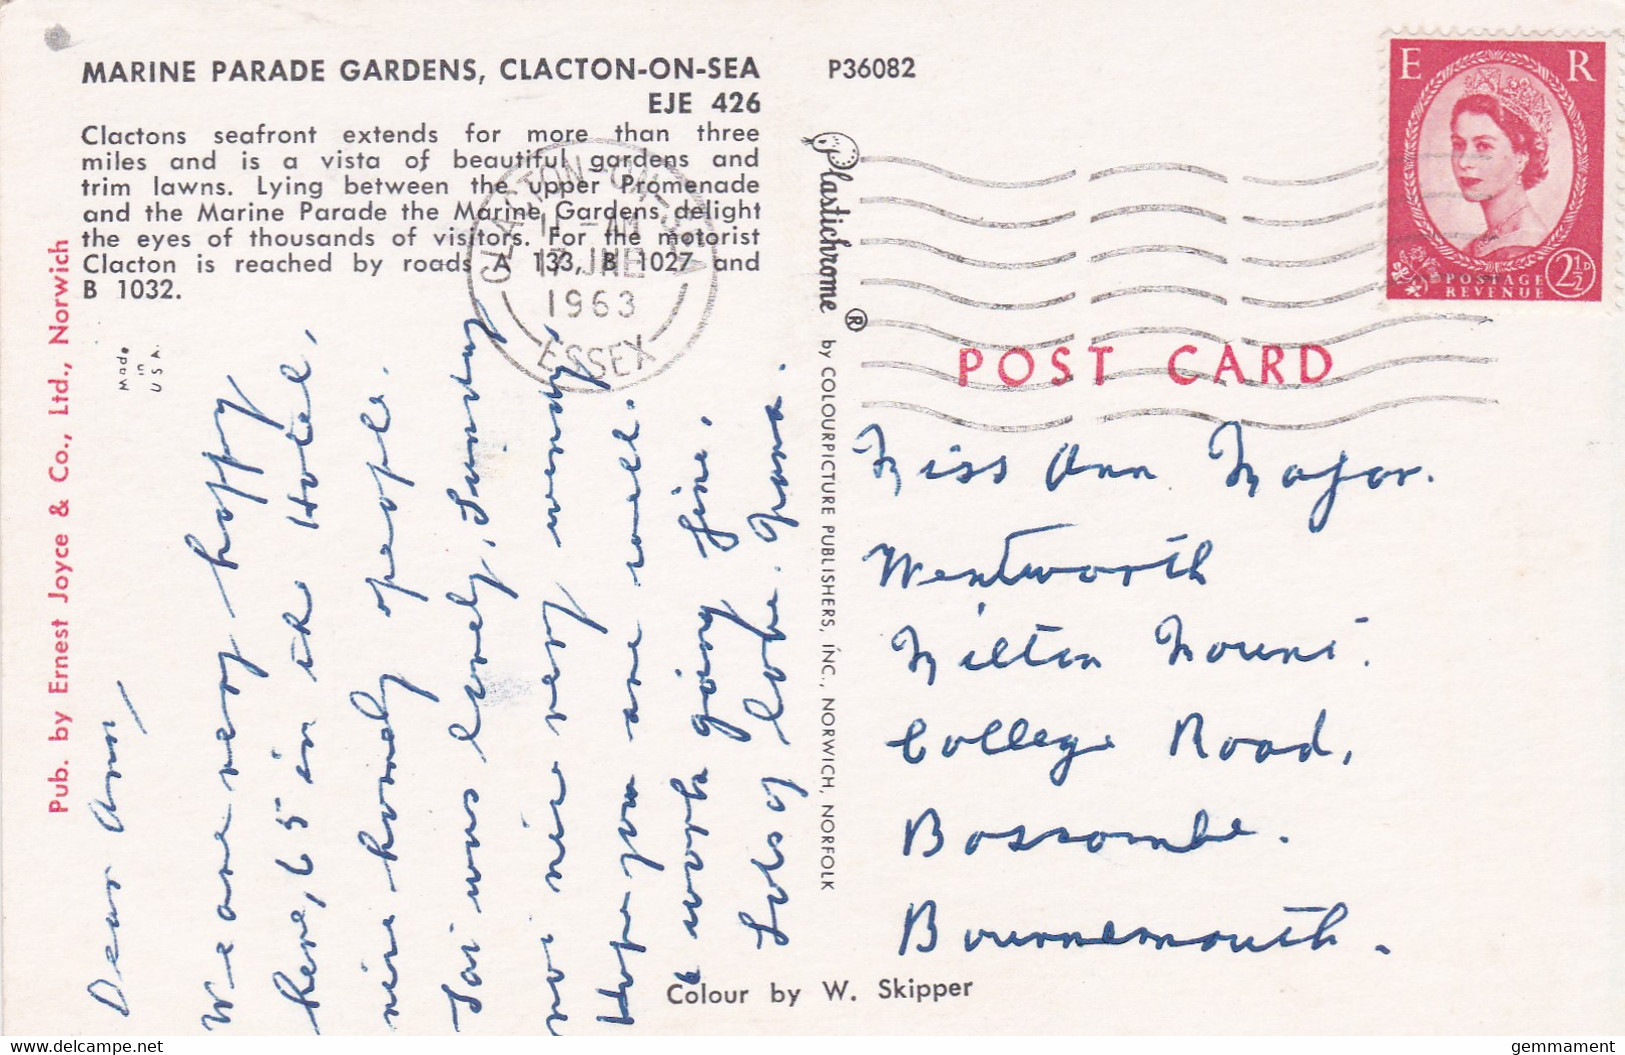 MARINE PARADE GARDENS, CLACTON-ON-SEA
EJE 426
Clactons seafront extends for more than three
miles and is a vista of beautiful gardens and
trim lawns. Lying between the upper Promenade
and the Marine Parade the Marine Gardens delight
the eyes of thousands of visitors. For the motorist
Clacton is reached by roads A 133, B 1027 and
B 1032.
P36082
Made
in
U S A.
Pub. by Ernest Joyce & Co., Ltd., Norwich
CLACTON-ON-SEA
AM
17 JNE
1963
ESSEX
Plastichrome ® by COLOURPICTURE PUBLISHERS, INC., NORWICH, NORFOLK
E R
2½D
POSTAGE
REVENUE
POST CARD
Dear Ann,
We are very happy
here, 65 in the Hotel,
nice homely people.
Sat was lovely, Sunday
not nice very windy
Hope you are well.
& work going fine.
Lots of love. Nana.
Miss Ann Major.
Wentworth
Milton Mount.
College Road,
Boscombe.
Bournemouth.
Colour by W. Skipper
www.delcampe.net
gemmament